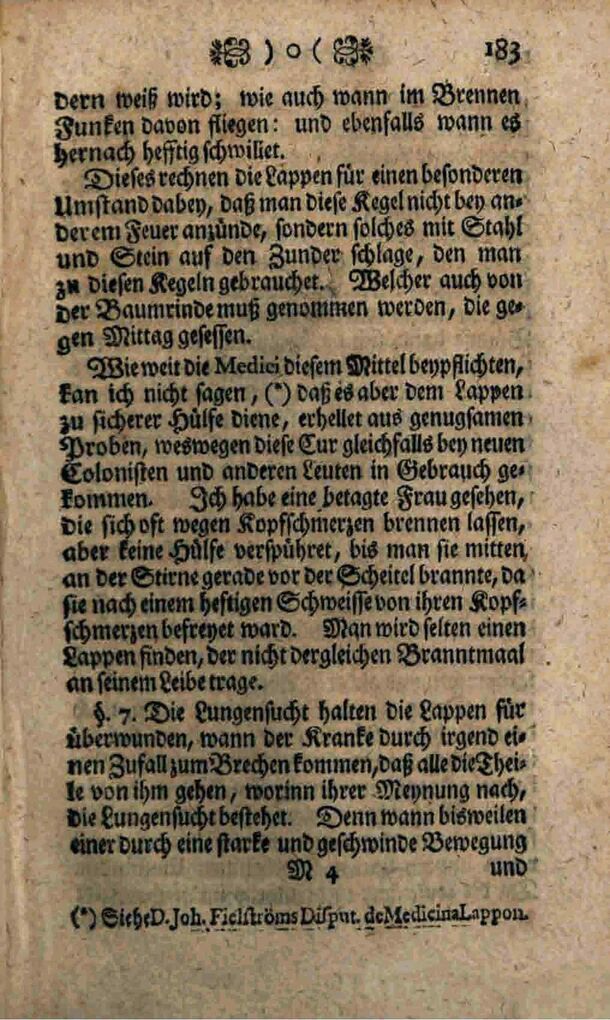 ) o ( 183
dern weiß wird; wie auch wann im Brennen
Funken davon fliegen: und ebenfalls wann es
hernach hefftig schwillet.
Dieses rechnen die Lappen für einen besonderen
Umstand dabey, daß man diese Kegel nicht bey an-
derem Feuer anzünde, sondern solches mit Stahl
und Stein auf den Zunder schlage, den man
zu diesen Kegeln gebrauchet. Welcher auch von
der Baumrinde muß genommen werden, die ge-
gen Mittag gesessen.
Wie weit die Medici diesem Mittel beypflichten,
kan ich nicht sagen, (*) daß es aber dem Lappen
zu sicherer Hülfe diene, erhellet aus genugsamen
Proben, weswegen diese Cur gleichfalls bey neuen
Colonisten und anderen Leuten in Gebrauch ge-
kommen. Ich habe eine betagte Frau gesehen,
die sich oft wegen Kopfschmerzen brennen lassen,
aber keine Hülfe verspühret, bis man sie mitten
an der Stirne gerade vor der Scheitel brannte, da
sie nach einem heftigen Schweisse von ihren Kopf-
schmerzen befreyet ward. Man wird selten einen
Lappen finden, der nicht dergleichen Branntmaal
an seinem Leibe trage.
§. 7. Die Lungensucht halten die Lappen für
überwunden, wann der Kranke durch irgend ei-
nen Zufall zum Brechen kommen, daß alle die Thei-
le von ihm gehen, worinn ihrer Meynung nach,
die Lungensucht bestehet. Denn wann bisweilen
einer durch eine starke und geschwinde Bewegung
M 4 und
(*) Siehe D. Joh. Fielströms Disput. de Medicina Lappon.